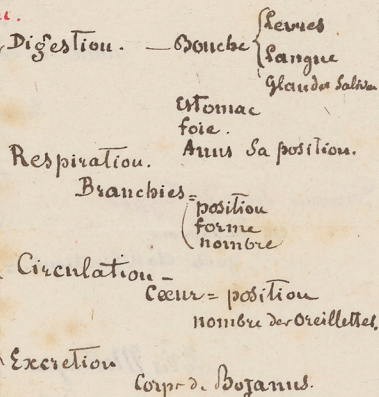 Levres
Digestion. — Bouche
Langue
Glandes Saliv
Estomac
foie.
Anus Sa position.
Respiration.
Branchies =
position
forme
nombre
Circulation —
Cœur = position
nombre des Oreillettes.
Excretion
Corps de Bojanus.